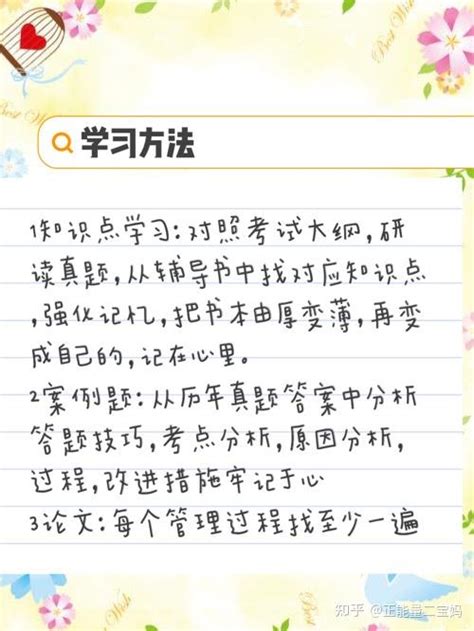 Best Wish
Best Wish
学习方法
1知识点学习:对照考试大纲,研
读真题,从辅导书中找对应知识点
,强化记忆,把书本由厚变薄,再变
成自己的,记在心里。
2案例题:从历年真题答案中分析
答题技巧,考点分析,原因分析,
过程,改进措施牢记于心
3论文:每个管理过程找至少一遍
知乎 @正能量二宝妈